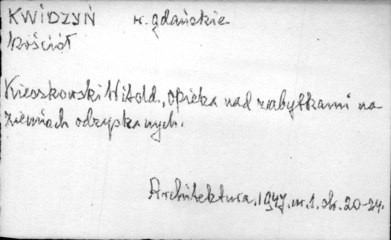 KWIDZYŃ w. gdańskie
Kościół
Kieszkowski Witold, Opieka nad zabytkami na
ziemiach odzyskanych.
Architektura, 1947, nr. 1. str. 20-24.